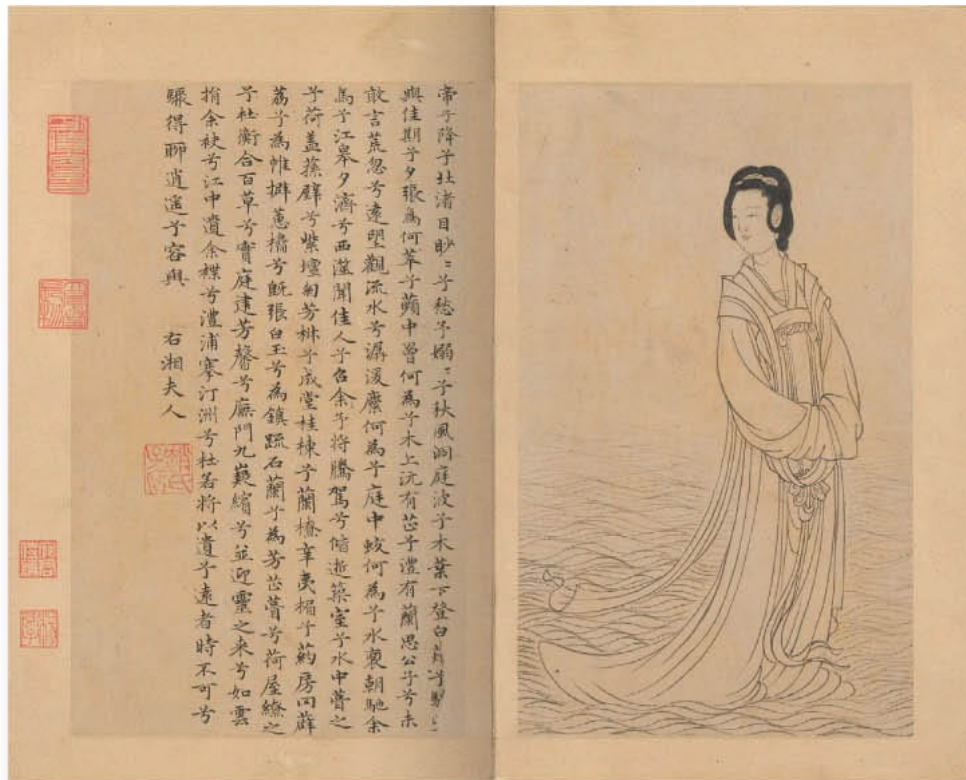 帝子降兮北渚目眇〻兮愁予嫋〻兮秋風洞庭波兮木葉下登白
與佳期兮夕張鳥何萃兮蘋中罾何為兮木上沅有芷兮澧有蘭思公子兮未
敢言荒忽兮遠望觀流水兮潺湲麋何為兮庭中蛟何為兮水裔朝馳余
馬兮江皋夕濟兮西澨聞佳人兮召余兮將騰駕兮偕逝築室兮水中葺之
兮荷蓋蓀壁兮紫壇匊芳椒兮成堂桂棟兮蘭橑辛夷楣兮葯房罔薜
荔兮為帷擗蕙櫋兮既張白玉兮為鎮疏石蘭兮為芳芷葺兮荷屋繚之
兮杜衡合百草兮實庭建芳馨兮廡門九嶷繽兮並迎靈之来兮如雲
捐余袂兮江中遺余褋兮澧浦搴汀洲兮杜若將以遺兮遠者時不可兮
驟得聊逍遙兮容與 右湘夫人
趙氏子昂